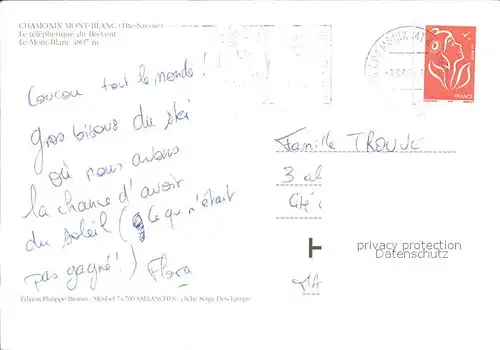 CHAMONIX MONT-BLANC (Hte-Savoie)
Le téléphérique du Brévent
Le Mont-Blanc 4807 m
CHAMONIX
FRANCE
Coucou tout le monde !
Gros bisous du ski
où nous avons
la chance d'avoir
du soleil ( Ce qu'n'était
pas gagné ! ) Flora
Famille
3
Cité
privacy protection
Datenschutz
Édition Philippe 74 700 SALLANCHES - cliché Serge Deschamps